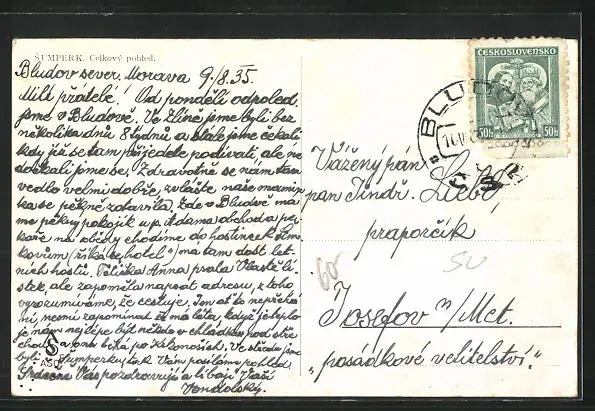 ŠUMPERK. Celkový pohled.
Bludov sever, Morava 9./8. 35.
Milí přátelé! Od pondělí odpoled.
jsme v Bludově. Ve Zlíně jsme byli bez
několika dnů 8 týdnů a stále jsme čekali
kdy již se tam přijedete podívati, ale ne
dočkali jsme se. Zdravotně se nám tam
vedlo velmi dobře, zvláště naše mamin
ka se pěkně zotavila. Zde v Bludově má
me pěkný pokojík u p. Adama obchod a pe-
kaře na obědy chodíme do hostince k
kovům (říká se "hotel") má tam dost let-
ních hostů. Tetička Anna psala Vlastě lí-
stek, ale zapoměla napsat adresu, z toho
vyrozumíváme, že cestuje. Jen ať to nepřehá
ní, nesmí zapomínat že má léta, když je teplo
je nám nejlépe být někde v chládku pod stře
chou a ona běhá po Krkonoších. Ve středu jsme
byli v Šumperku, tak Vám posíláme pohled.
Srdečně Vás pozdravují a líbají Vaši
ČESKOSLOVENSKO
50h 50h
BLUDOV
Vážený pán
pan Jindř.
praporčík
60
SU
Josefov n/Met.
"posádkové velitelství."